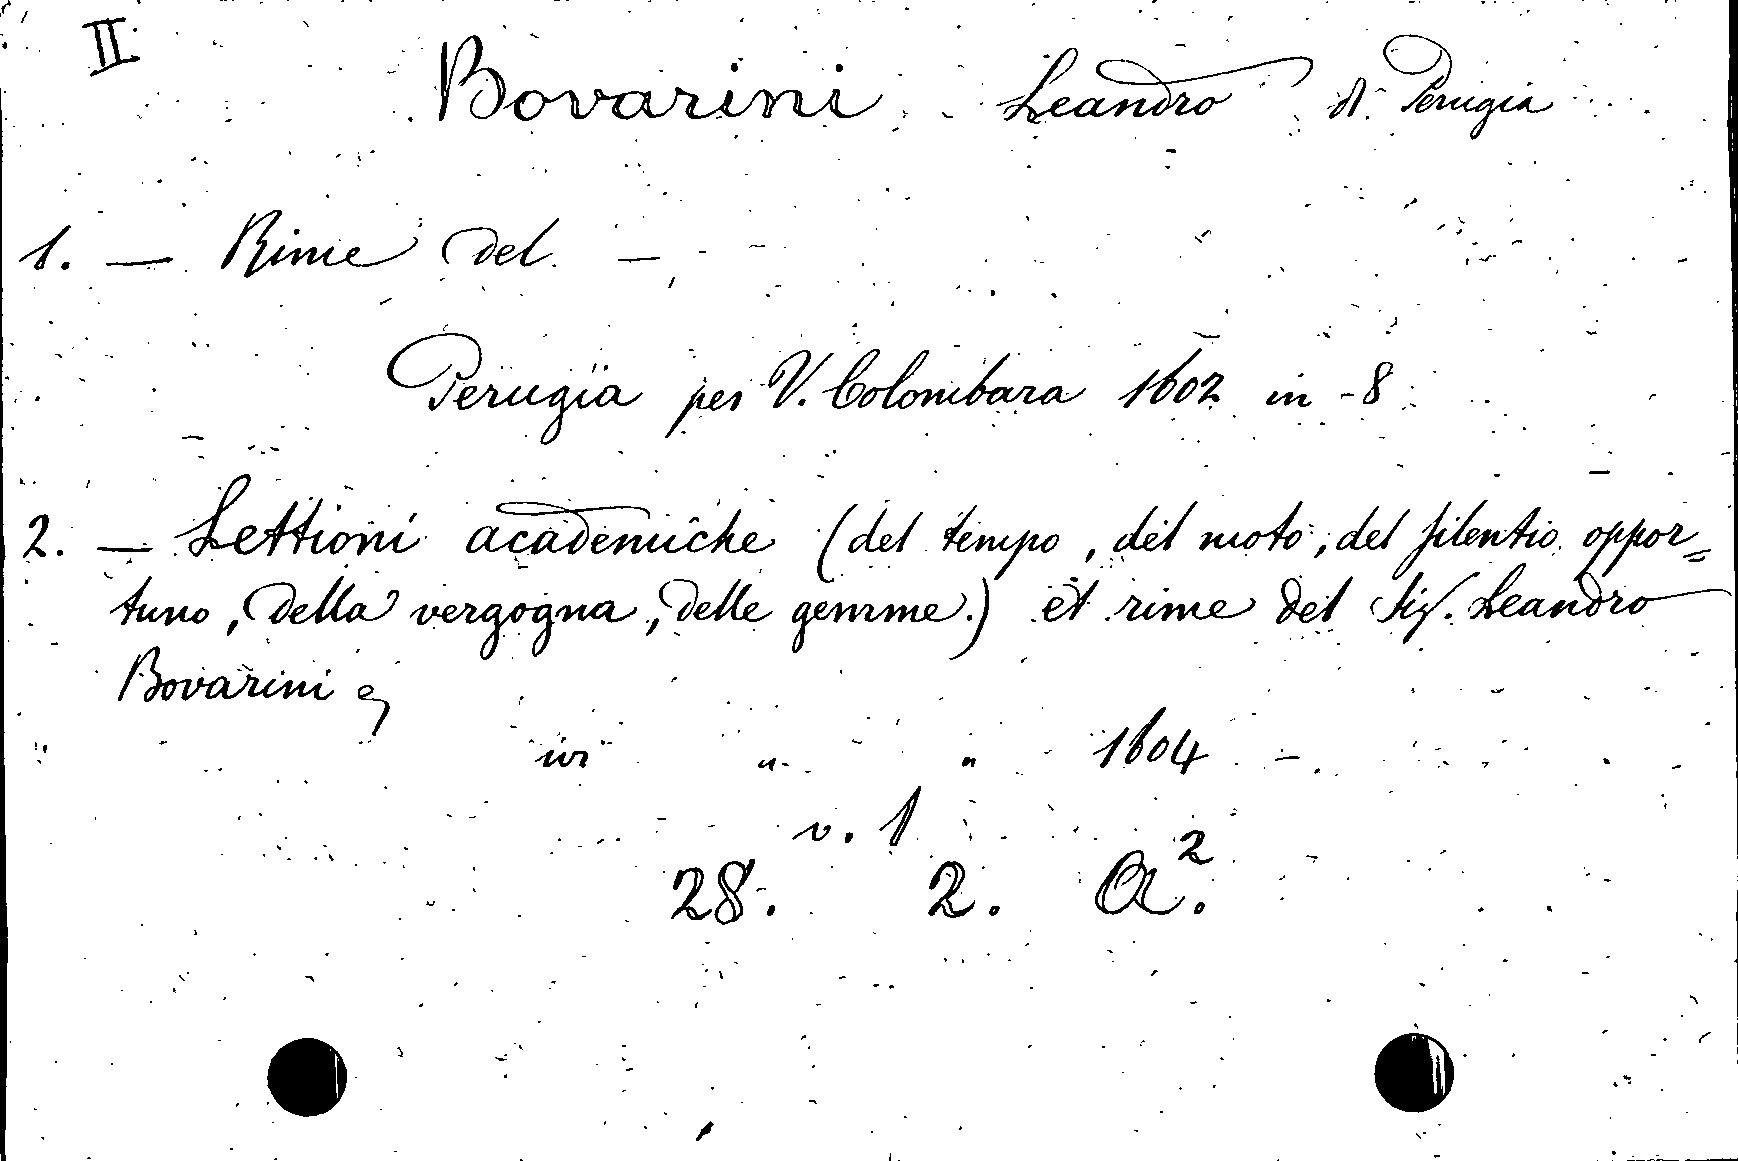 II
Bovarini Leandro di Perugia
1. — Rime del —
Perugia per V. Colombara 1602 in-8
2. — Lettioni academiche (del tempo, del moto, del silentio oppor=
tuno, della vergogna, delle gemme.) et rime del Sig. Leandro
Bovarini
ivi " " 1604 -
v. 1
28. 2. A².